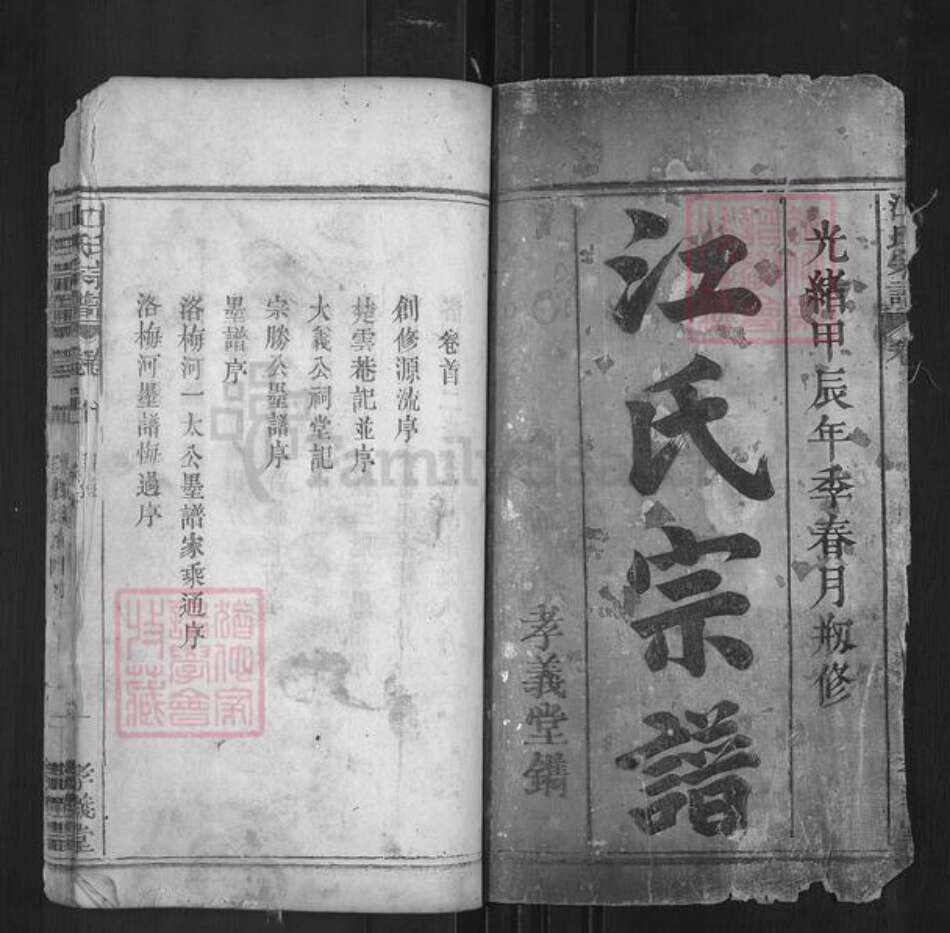 光緒甲辰年季春月刱修
江氏宗譜
孝義堂鐫
卷首
創修源流序
楚雲菴記並序
大義公祠堂記
宗勝公墨譜序
墨譜序
洛梅河一太公墨譜家乘通序
洛梅河墨譜悔過序
孝義堂
FamilySearch